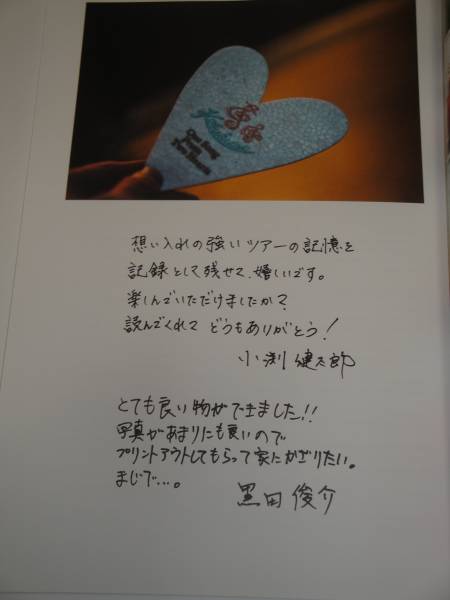 想い入れの強いツアーの記憶を
記録として残せて、嬉しいです。
楽しんでいただけましたか?
読んでくれて どうもありがとう!
小渕 健太郎
とても良い物ができました!!
写真があまりにも良いので
プリントアウトしてもらって家にかざりたい。
まじで…。
黒田 俊介